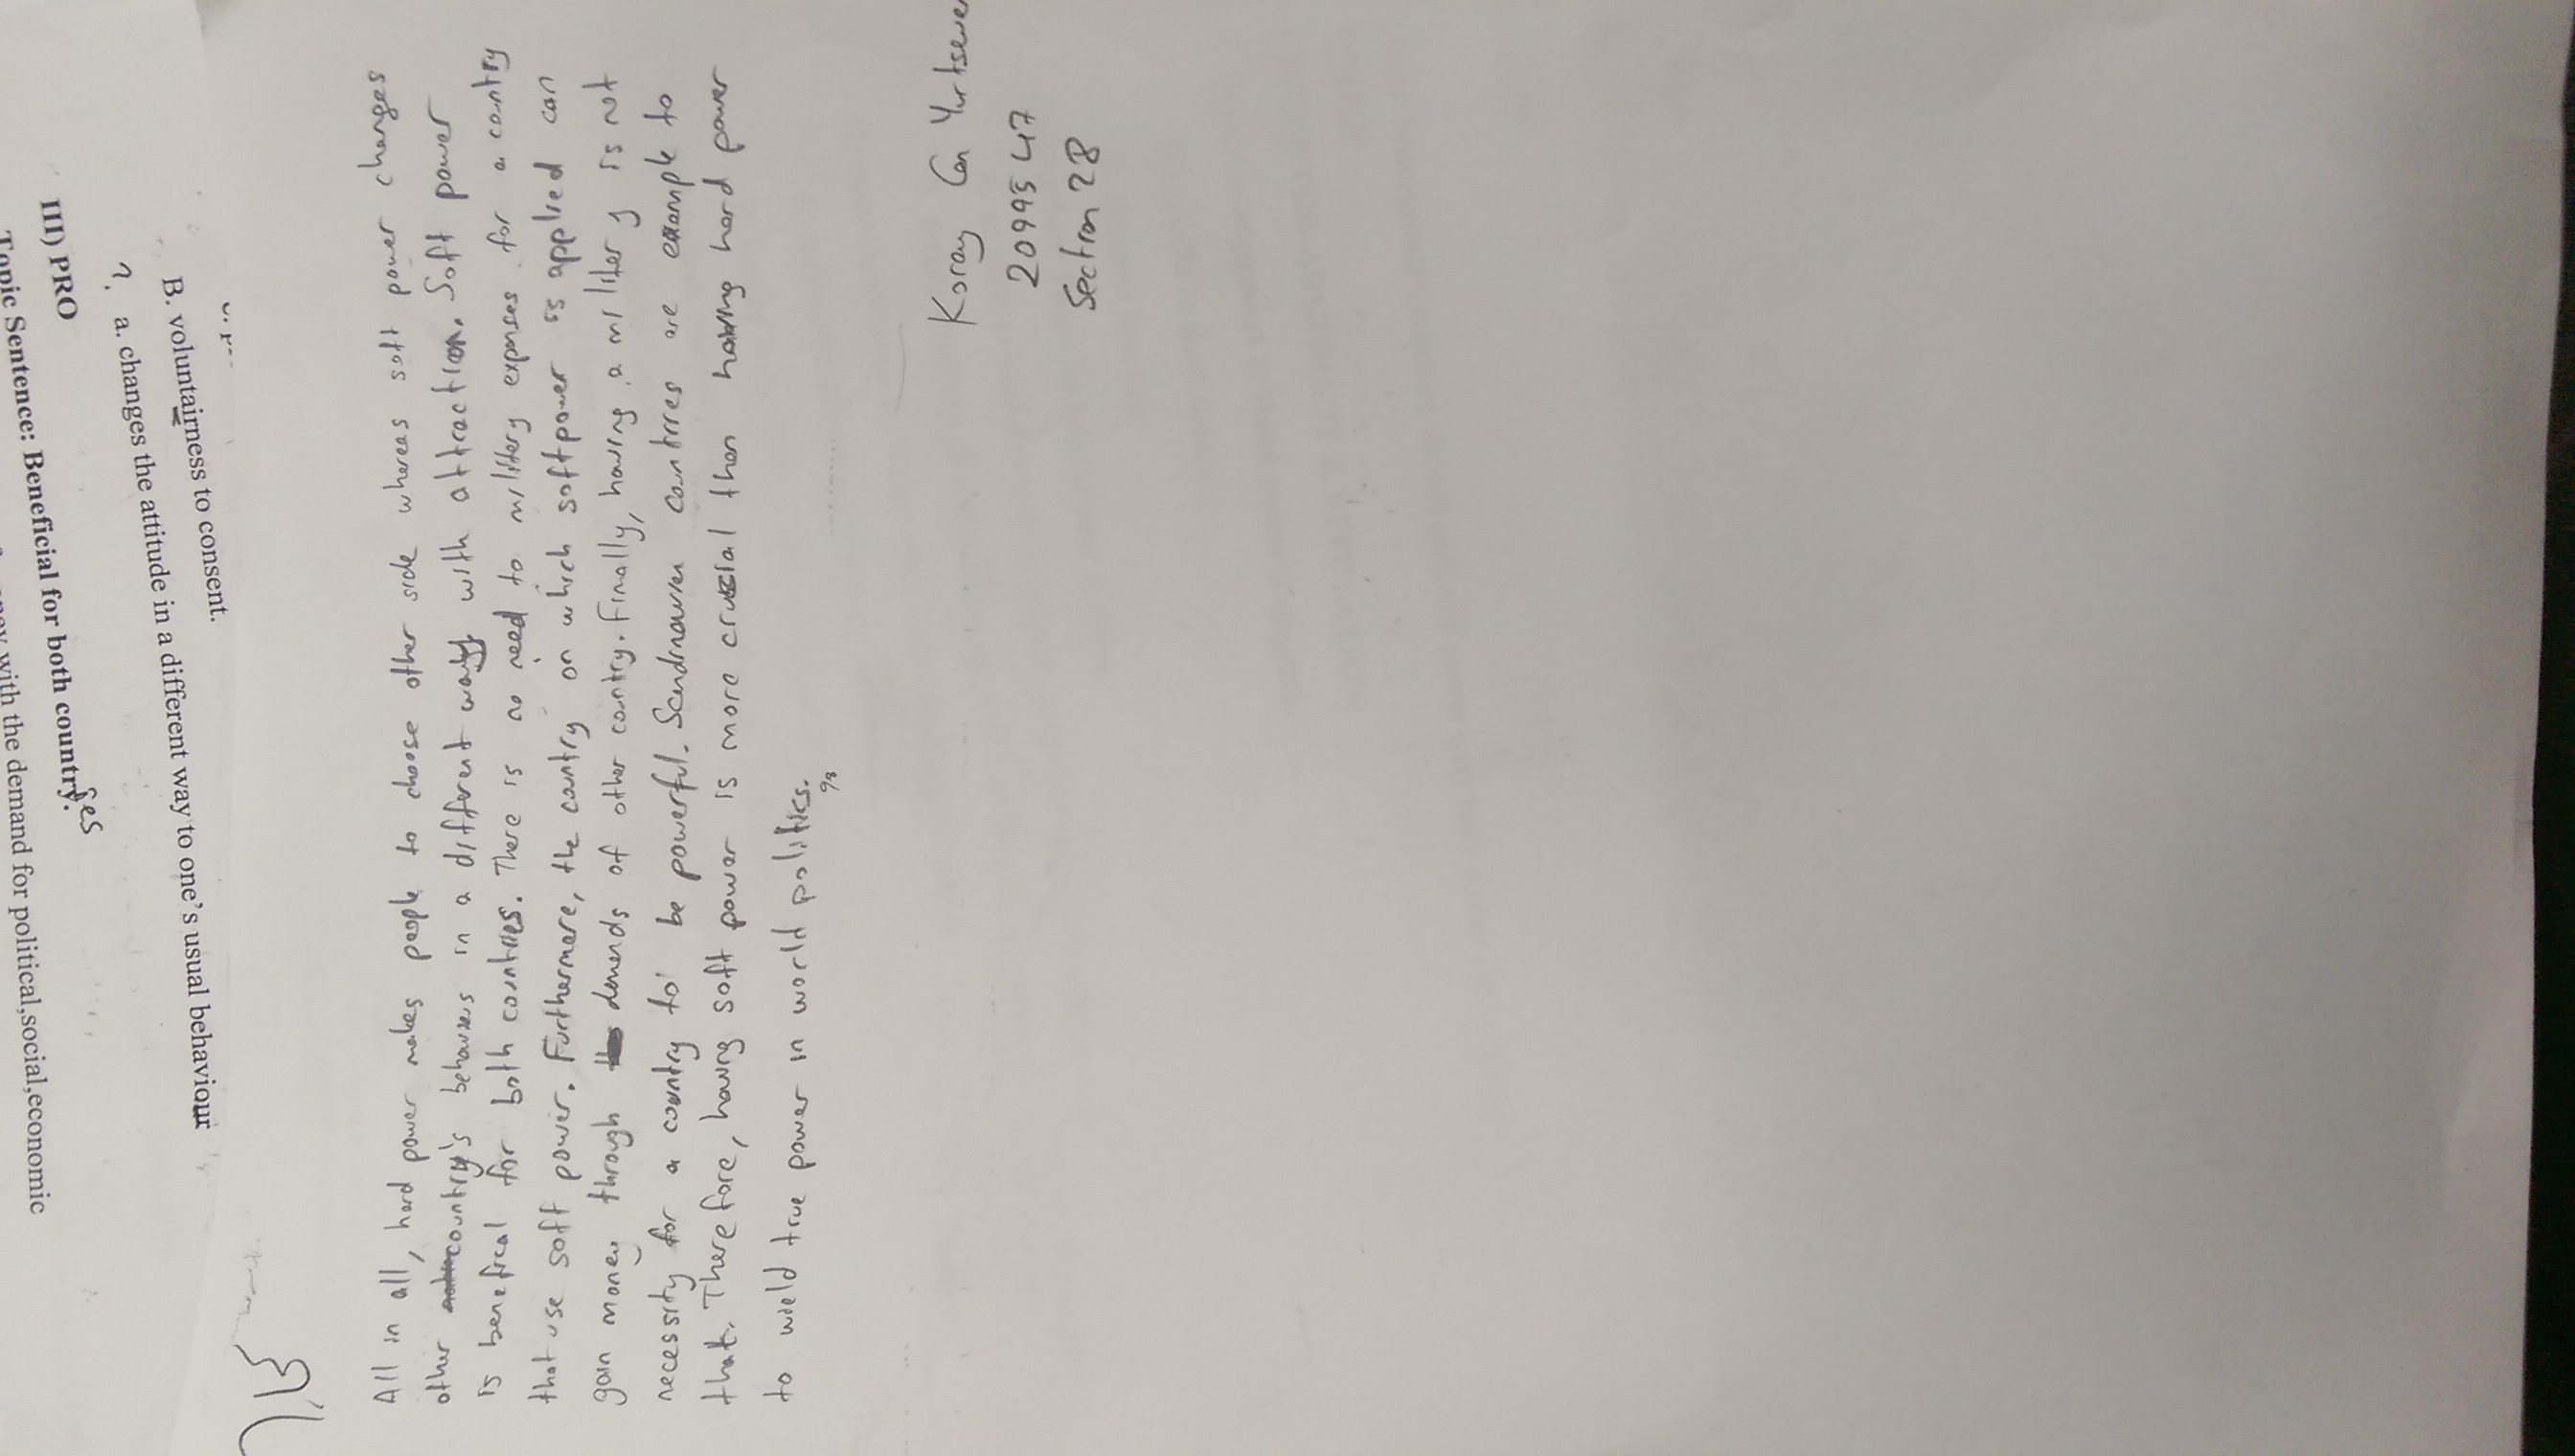 B. voluntairness to consent.
? a. changes the attitude in a different way to one's usual behaviour
III) PRO
Topic Sentence: Beneficial for both country. ies
with the demand for political,social,economic
All in all, hard power makes people to choose other side whereas soft power changes
other country's behaviours in a different way with attraction. Soft power
is benefical for both countries. There is no need to military expenses for a country
that use soft power. Furthermore, the country on which softpower is applied can
gain money through demands of other country. Finally, having a military is not
necessity for a country to be powerful. Scandinavien countries are example to
that. Therefore, having soft power is more crucial than having hard power
to wield true power in world politics.
Koray Can Yurtsever
2099547
Section 28